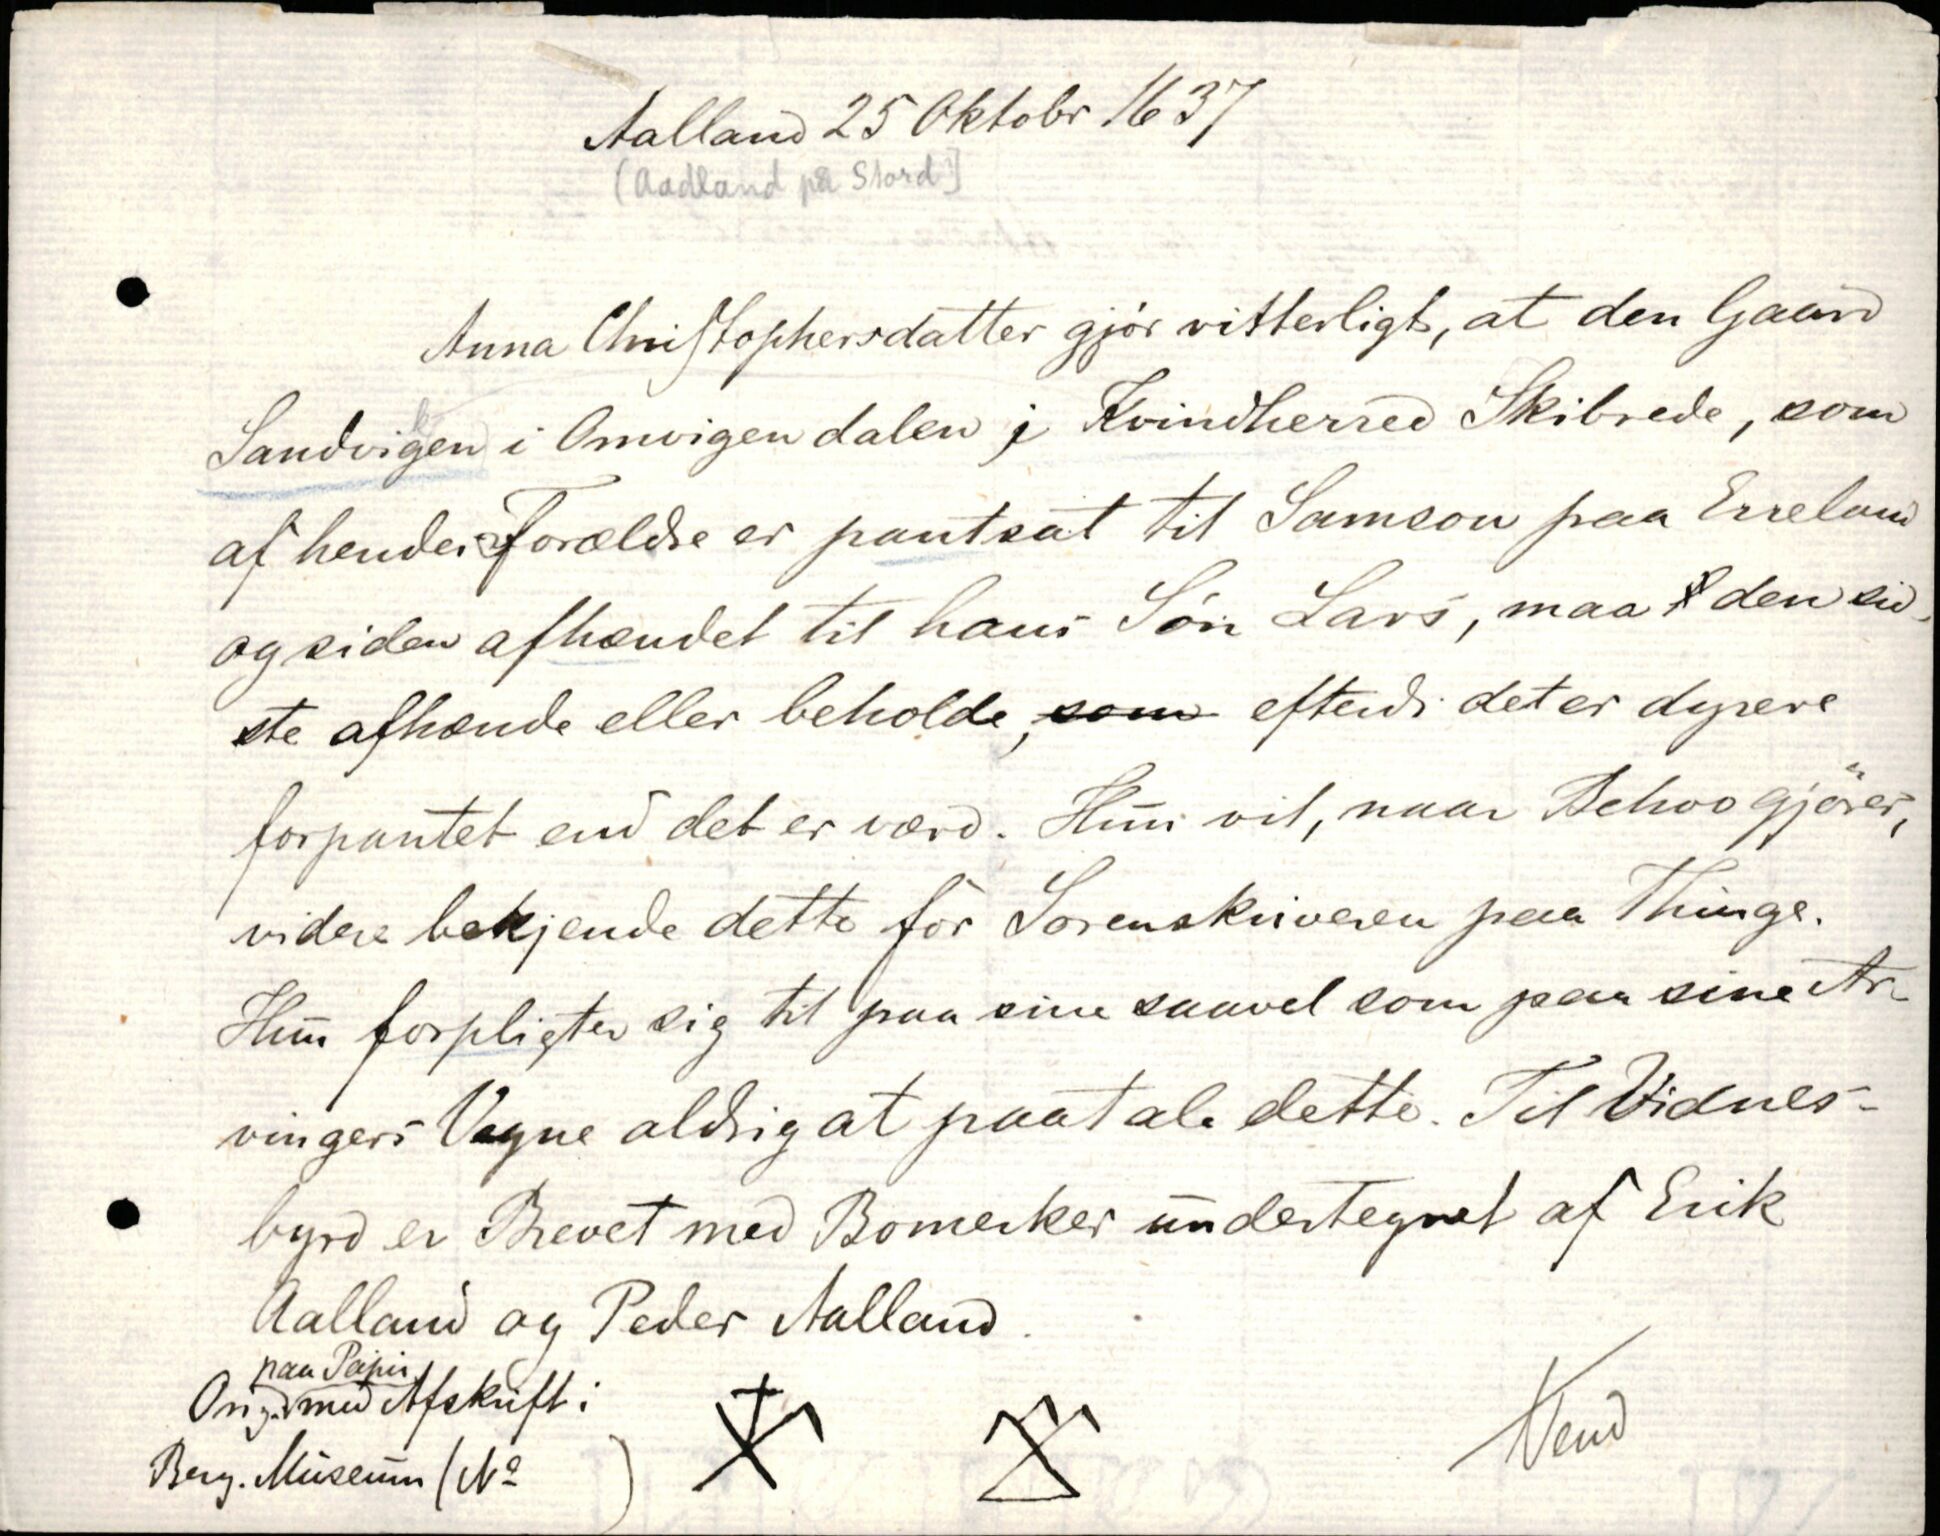 Aalland 25 Oktobr 1637
(Aadland på Stord]
Anna Christophersdatter gjør vitterligt, at den Gaard
Sandvigen i Omvigendalen i Kvindherred Skibrede, som
af hendes Forældre er pantsat til Samson paa Erreland
og siden afhændet til hans Søn Lars, maa den sid-
ste afhænde eller beholde, som efterdi det er dyrere
forpantet end det er værd. Hun vil, naar Behov gjøres,
videre bekjende dette for Sorenskriveren paa Thinge.
Hun forpligter sig til paa sine saavel som paa sine Ar-
vingers Vegne aldrig at paatale dette. Til Vidnes-
byrd er Brevet med Bomerker undertegnet af Erik
Aalland og Peder Aalland.
paa Papir
Orig. med Afskrift i
Berg. Museum (No )
Vend